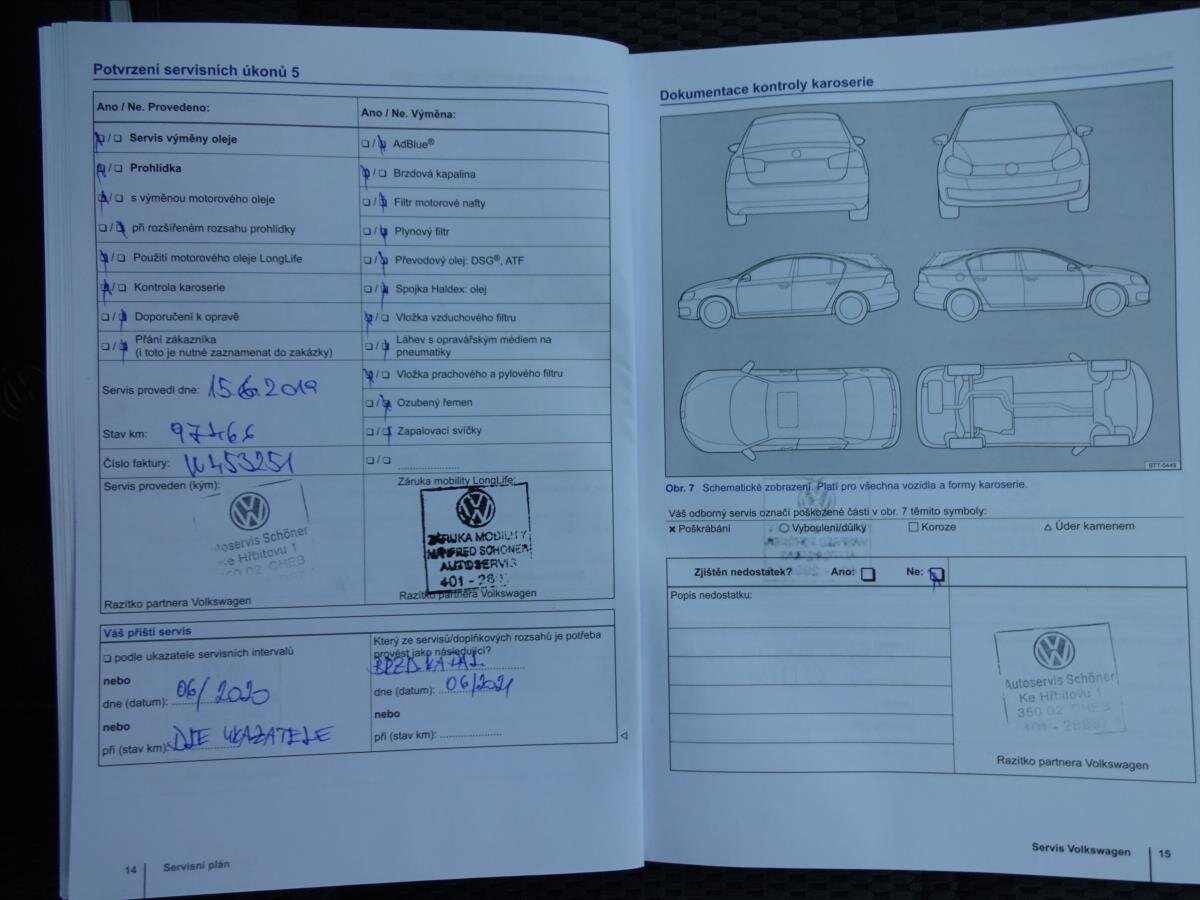 Potvrzení servisních úkonů 5
Ano / Ne. Provedeno:
❏/❏ Servis výměny oleje
❏/❏ Prohlídka
❏/❏ s výměnou motorového oleje
❏/❏ při rozšířeném rozsahu prohlídky
❏/❏ Použití motorového oleje LongLife
❏/❏ Kontrola karoserie
❏/❏ Doporučení k opravě
❏/❏ Přání zákazníka
(i toto je nutné zaznamenat do zakázky)
Servis provedl dne: 15.6.2019
Stav km:
Číslo faktury:
Servis proveden (kým):
Autoservis Schöner
Ke Hřbitovu 1
350 02 CHEB
Razítko partnera Volkswagen
Ano / Ne. Výměna:
❏/❏ AdBlue®
❏/❏ Brzdová kapalina
❏/❏ Filtr motorové nafty
❏/❏ Plynový filtr
❏/❏ Převodový olej: DSG®, ATF
❏/❏ Spojka Haldex: olej
❏/❏ Vložka vzduchového filtru
❏/❏ Láhev s opravářským médiem na
pneumatiky
❏/❏ Vložka prachového a pylového filtru
❏/❏ Ozubený řemen
❏/❏ Zapalovací svíčky
❏/❏
Záruka mobility LongLife:
ZÁRUKA MOBILITY
MANFRED SCHÖNER
AUTOSERVIS
Razítko partnera Volkswagen
Váš příští servis
❏ podle ukazatele servisních intervalů
nebo
dne (datum): 06/2020
nebo
při (stav km): DLE UKAZATELE
Který ze servisů/doplňkových rozsahů je potřeba
provést jako následující?
BRZD. KAPAL.
dne (datum): 06/2021
nebo
při (stav km):
14 Servisní plán
Dokumentace kontroly karoserie
BTT-0449
Obr. 7 Schematické zobrazení. Platí pro všechna vozidla a formy karoserie.
Váš odborný servis označí poškozené části v obr. 7 těmito symboly:
× Poškrábání ○ Vyboulení/důlky □ Koroze △ Úder kamenem
Zjištěn nedostatek? Ano: ❏ Ne: ❏
Popis nedostatku:
Autoservis Schöner
Ke Hřbitovu 1
350 02 CHEB
Razítko partnera Volkswagen
Servis Volkswagen 15